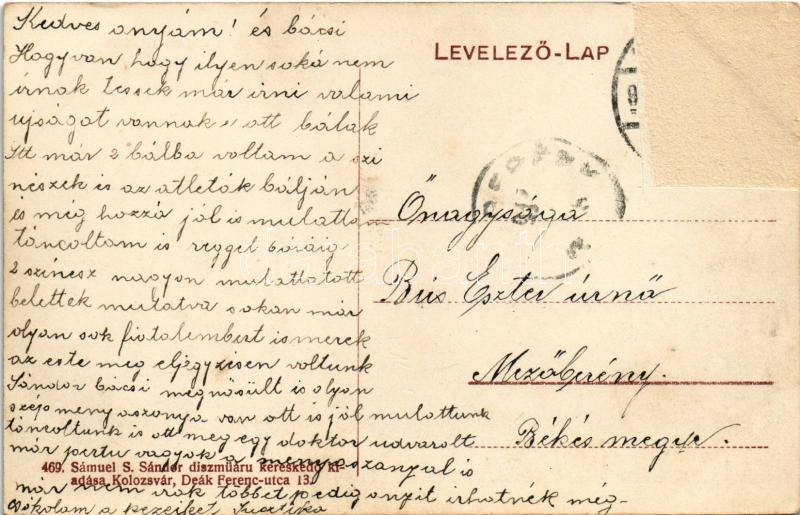 Kedves anyám! és bácsi
Hogyvan hogy ilyen soká nem
írnak tessek már írni valami
ujságot vannak e ott bálak
Itt már 2 bálba voltam a szi
nészek is az atleták bálján
és még hozzá jól is mulattam
táncoltam is reggel óráig
2 színesz nagyon mulattatott
belettek mutatva sokan már
olyan sok fiatalembert ismerek
az este meg eljegyzésen voltunk
Sándor bácsi megnősült is olyan
szép menyaszonya van ott is jól mulattunk
táncoltunk is ott meg egy doktor udvarolt
már pertu vagyok a menyasszanyal is
már nem irok többet pedig anyit irhatnék még
csokolom a kezeiket Jusztika
LEVELEZŐ-LAP
Őnagysága
Bús Eszter úrnő
Mezőberény.
Békés megye.
469. Sámuel S. Sándor diszmüáru kereskedő ki-
adása Kolozsvár, Deák Ferenc-utca 13.